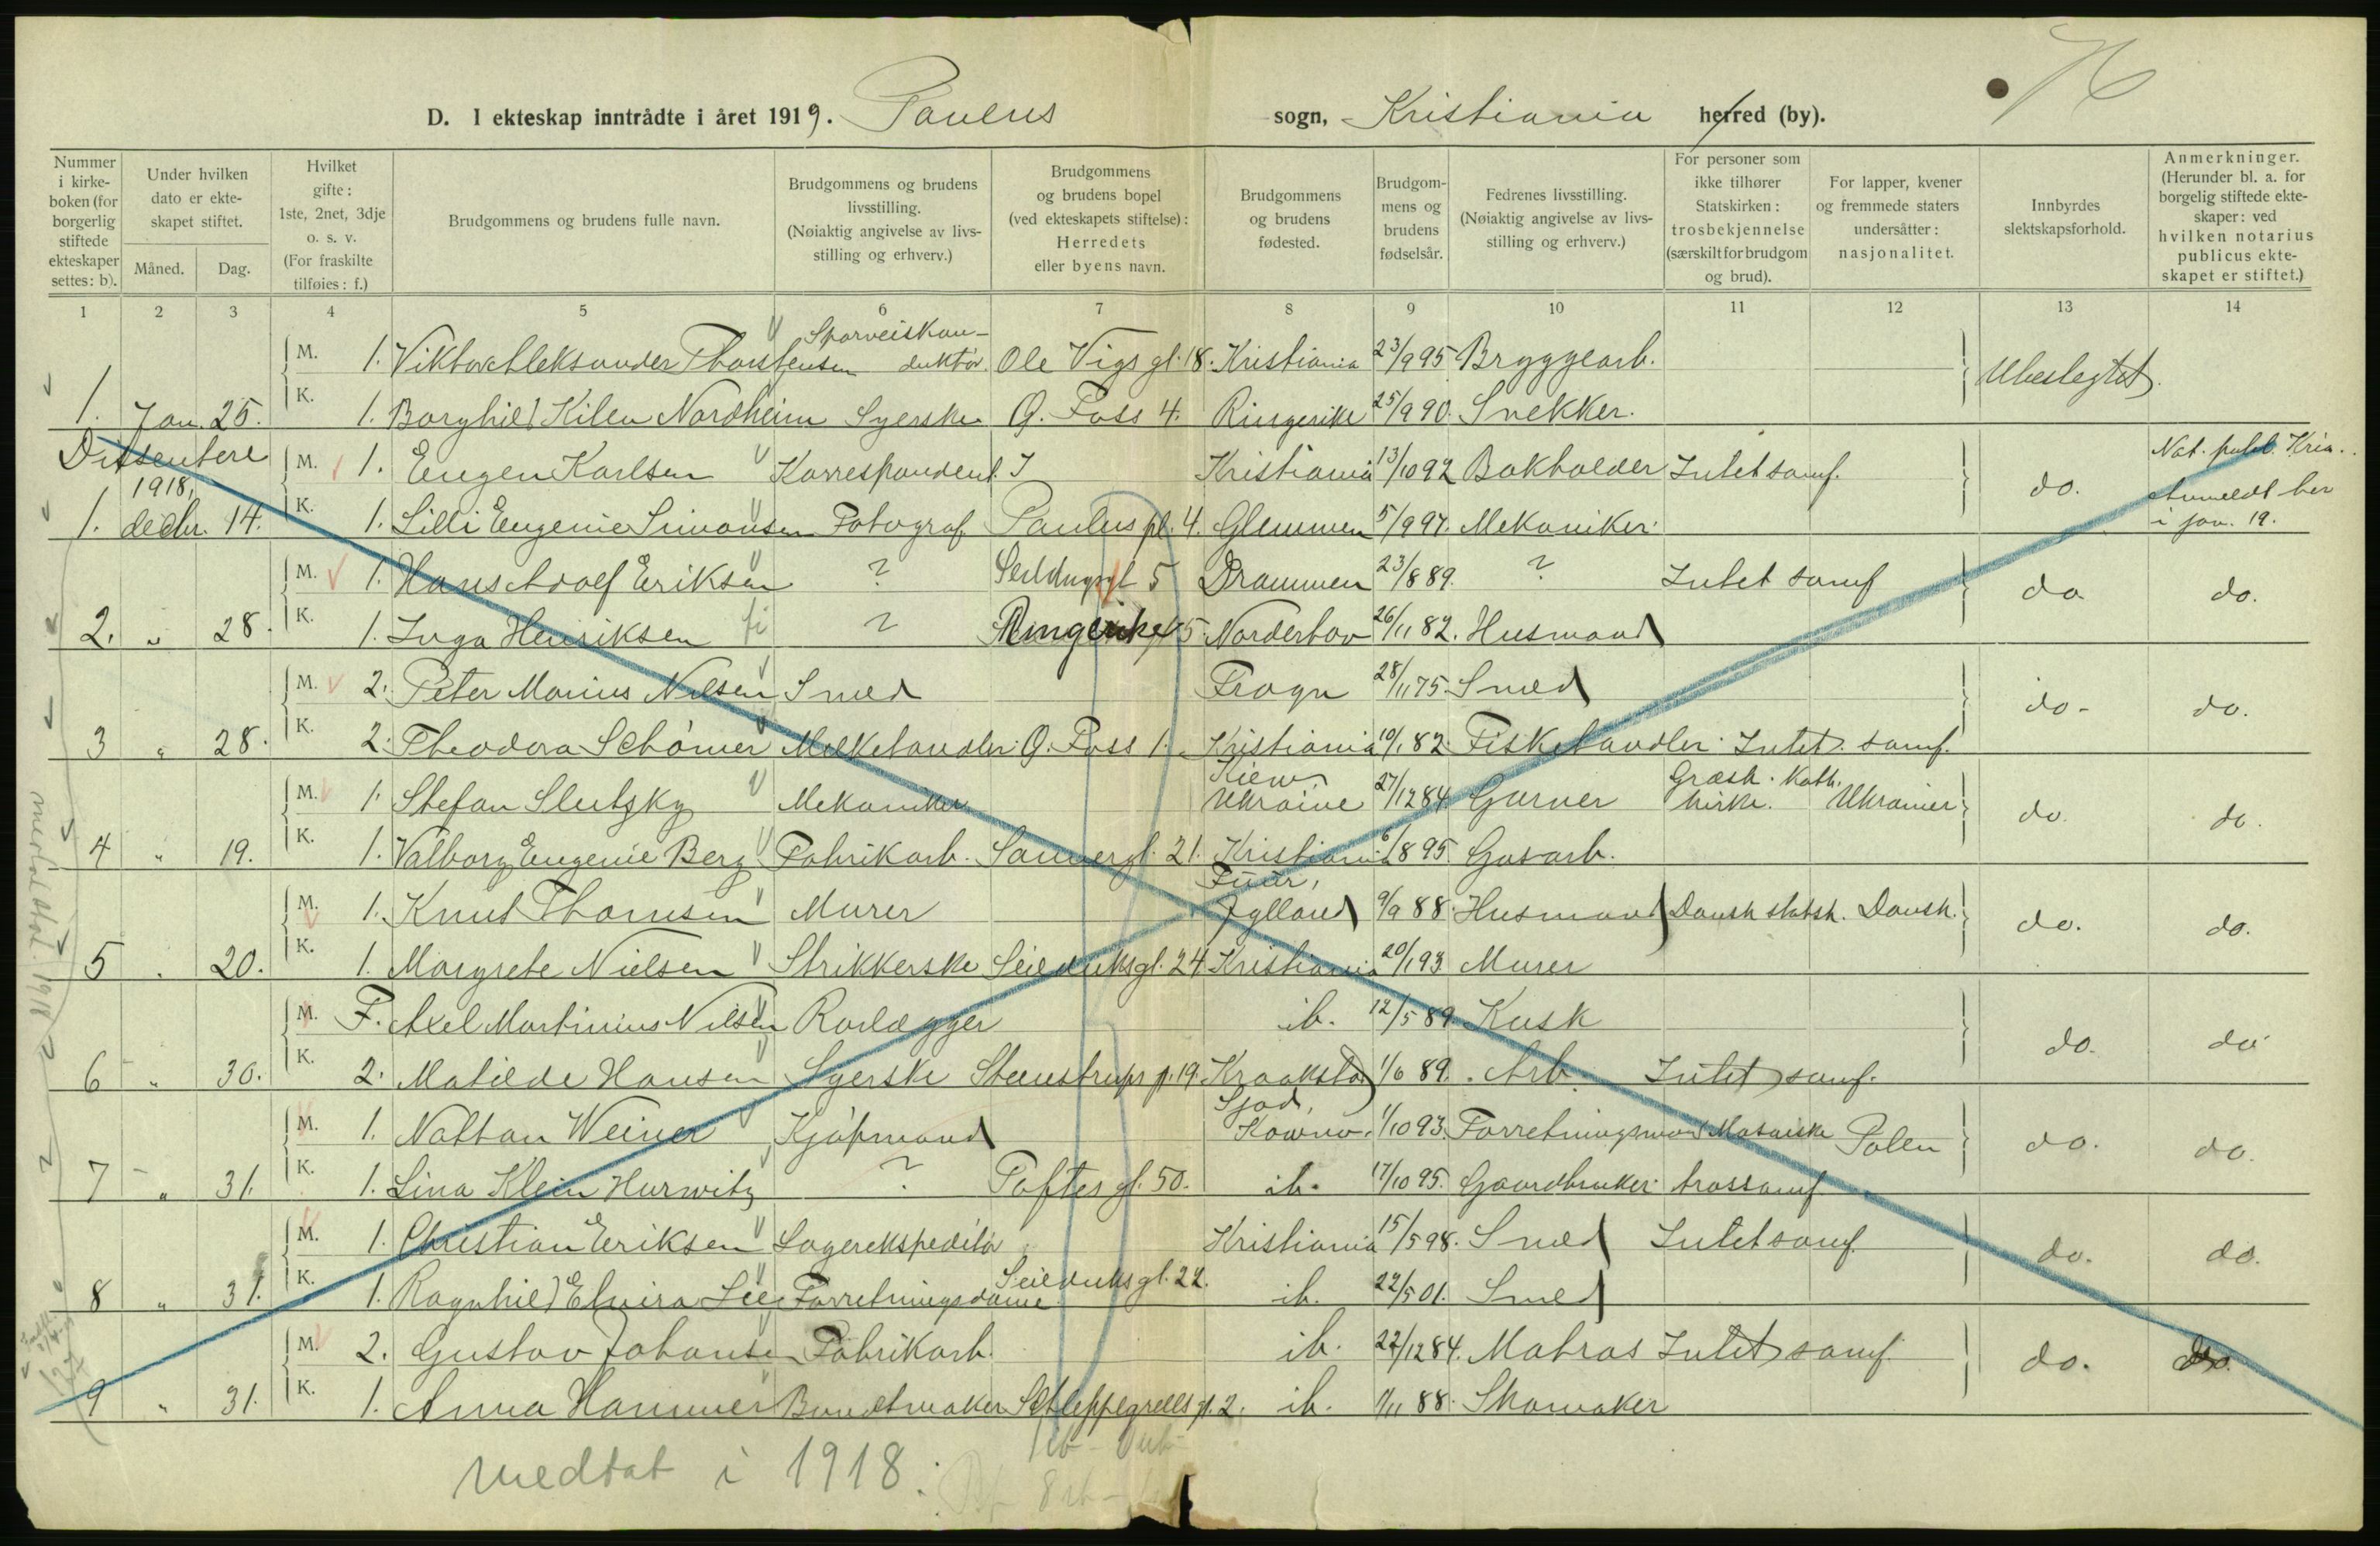 D. I ekteskap inntrådte i året 1919. Paulus sogn, Kristiania herred (by).
Nummer i kirkeboken (for borgerlig stiftede ekteskaper settes: b).
Under hvilken dato er ekteskapet stiftet.
Måned. Dag.
Hvilket gifte: 1ste, 2net, 3dje o. s. v. (For fraskilte tilføies: f.)
Brudgommens og brudens fulle navn.
Brudgommens og brudens livsstilling. (Nøiaktig angivelse av livsstilling og erhverv.)
Brudgommens og brudens bopel (ved ekteskapets stiftelse): Herredets eller byens navn.
Brudgommens og brudens fødested.
Brudgommens og brudens fødselsår.
Fedrenes livsstilling. (Nøiaktig angivelse av livsstilling og erhverv.)
For personer som ikke tilhører Statskirken: trosbekjennelse (særskilt for brudgom og brud).
For lapper, kvener og fremmede staters undersåtter: nasjonalitet.
Innbyrdes slektskapsforhold.
Anmerkninger. (Herunder bl. a. for borgelig stiftede ekteskaper: ved hvilken notarius publicus ekteskapet er stiftet.)
1 2 3 4 5 6 7 8 9 10 11 12 13 14
M. 1. Viktor Aleksander Thorstensen Sporveiskonduktör. Ole Vigs gt. 18. Kristiania 23/9 95 Bryggearb. Ubeslegtet.
1. Jan. 25. K. 1. Borghild Kilen Nordheim Syerske G. Foss 4. Ringerike 25/9 90. Snekker.
Dissentere M. 1. Eugen Karlsen Korrespondent. Kristiania 13/10 92 Bokholder Intet samf. do. Not. publ. Kria.
1918,
1. decbr. 14. K. 1. Lilli Eugenie Simonsen Fotograf Paulus pl. 4. Glemmen 5/9 97. Mekaniker. Anmeldt her i jan. 19.
M. 1. Hans Adolf Eriksen ? 5 Drammen 23/8 89. ? Intet samf do. do.
2. " 28. K. 1. Inga Henriksen ? Ringerike 5 Norderhov 26/11 82. Husmand
M. 2. Peter Marius Nilsen Smed Frogn 28/11 75. Smed do. do.
3 " 28. K. 2. Theodora Schömer Melkehandler. G. Foss 1. Kristiania 10/1 82 Fiskehandler. Intet samf.
M. 1. Stefan Slutzky Mekaniker Kiew Ukraine 27/12 84. Garver Græsk. Kath. kirke. Ukrainer do. do.
4 " 19. K. 1. Valborg Eugenie Berg Fabrikarb. Sannergt. 21. Kristiania 6/8 95. Gasarb.
M. 1. Knut Thomsen Murer Fuur, Jylland 9/9 88. Husmand Dansk statsk. Dansk. do. do.
5 " 20. K. 1. Margrete Nielsen Strikkerske Seilduksgt. 24 Kristiania 20/1 93 Murer
M. F. Axel Martinius Nilsen Rørlægger ib. 12/5 89. Kusk do. do
6 " 30. K. 2. Matilde Hansen Syerske Steenstrups g. 19. Kraakstad 1/6 89. Arb. Intet samf.
M. 1. Nathan Weiner Kjøpmand Kowno. 1/10 93. Forretningsmand Mosaiske Polen do. do.
7 " 31. K. 1. Lina Klein Hurwitz ? Toftes gt. 50. ib. 17/10 95. Gaardbruker trossamf.
M. 1. Christian Eriksen Lagerekspeditör Kristiania 15/5 98. Smed Intet samf. do. do.
8 " 31. K. 1. Ragnhild Elvira Lie Forretningsdame Seilduksgt. 22. ib. 22/5 01. Smed
M. 2. Gustav Johansen Fabrikarb. ib. 22/12 84. Matros Intet samf. do. do.
9 " 31. K. 1. Anna Hammer Buntmaker Schleppegrells gt. 2. ib. 1/11 88. Skomaker
medtat i 1918.